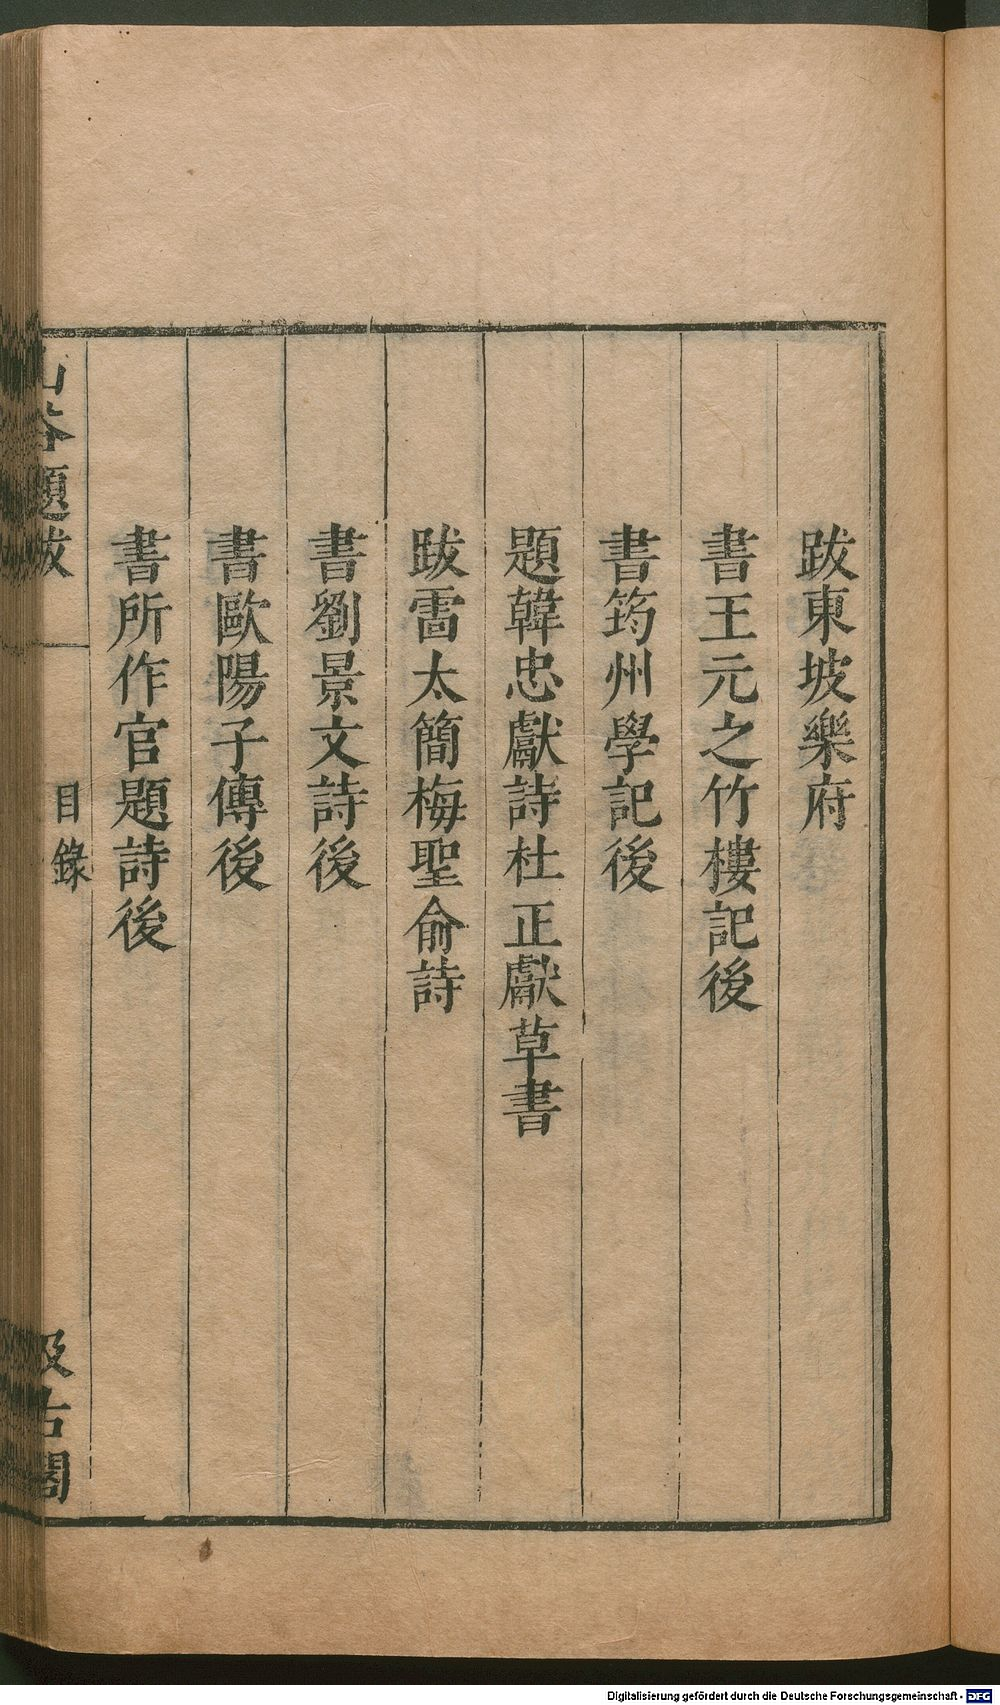 跋東坡樂府
書王元之竹樓記後
書筠州學記後
題韓忠獻詩杜正獻草書
跋雷太簡梅聖俞詩
書劉景文詩後
書歐陽子傳後
書所作官題詩後
山谷題跋
目錄
汲古閣
Digitalisierung gefördert durch die Deutsche Forschungsgemeinschaft - DFG